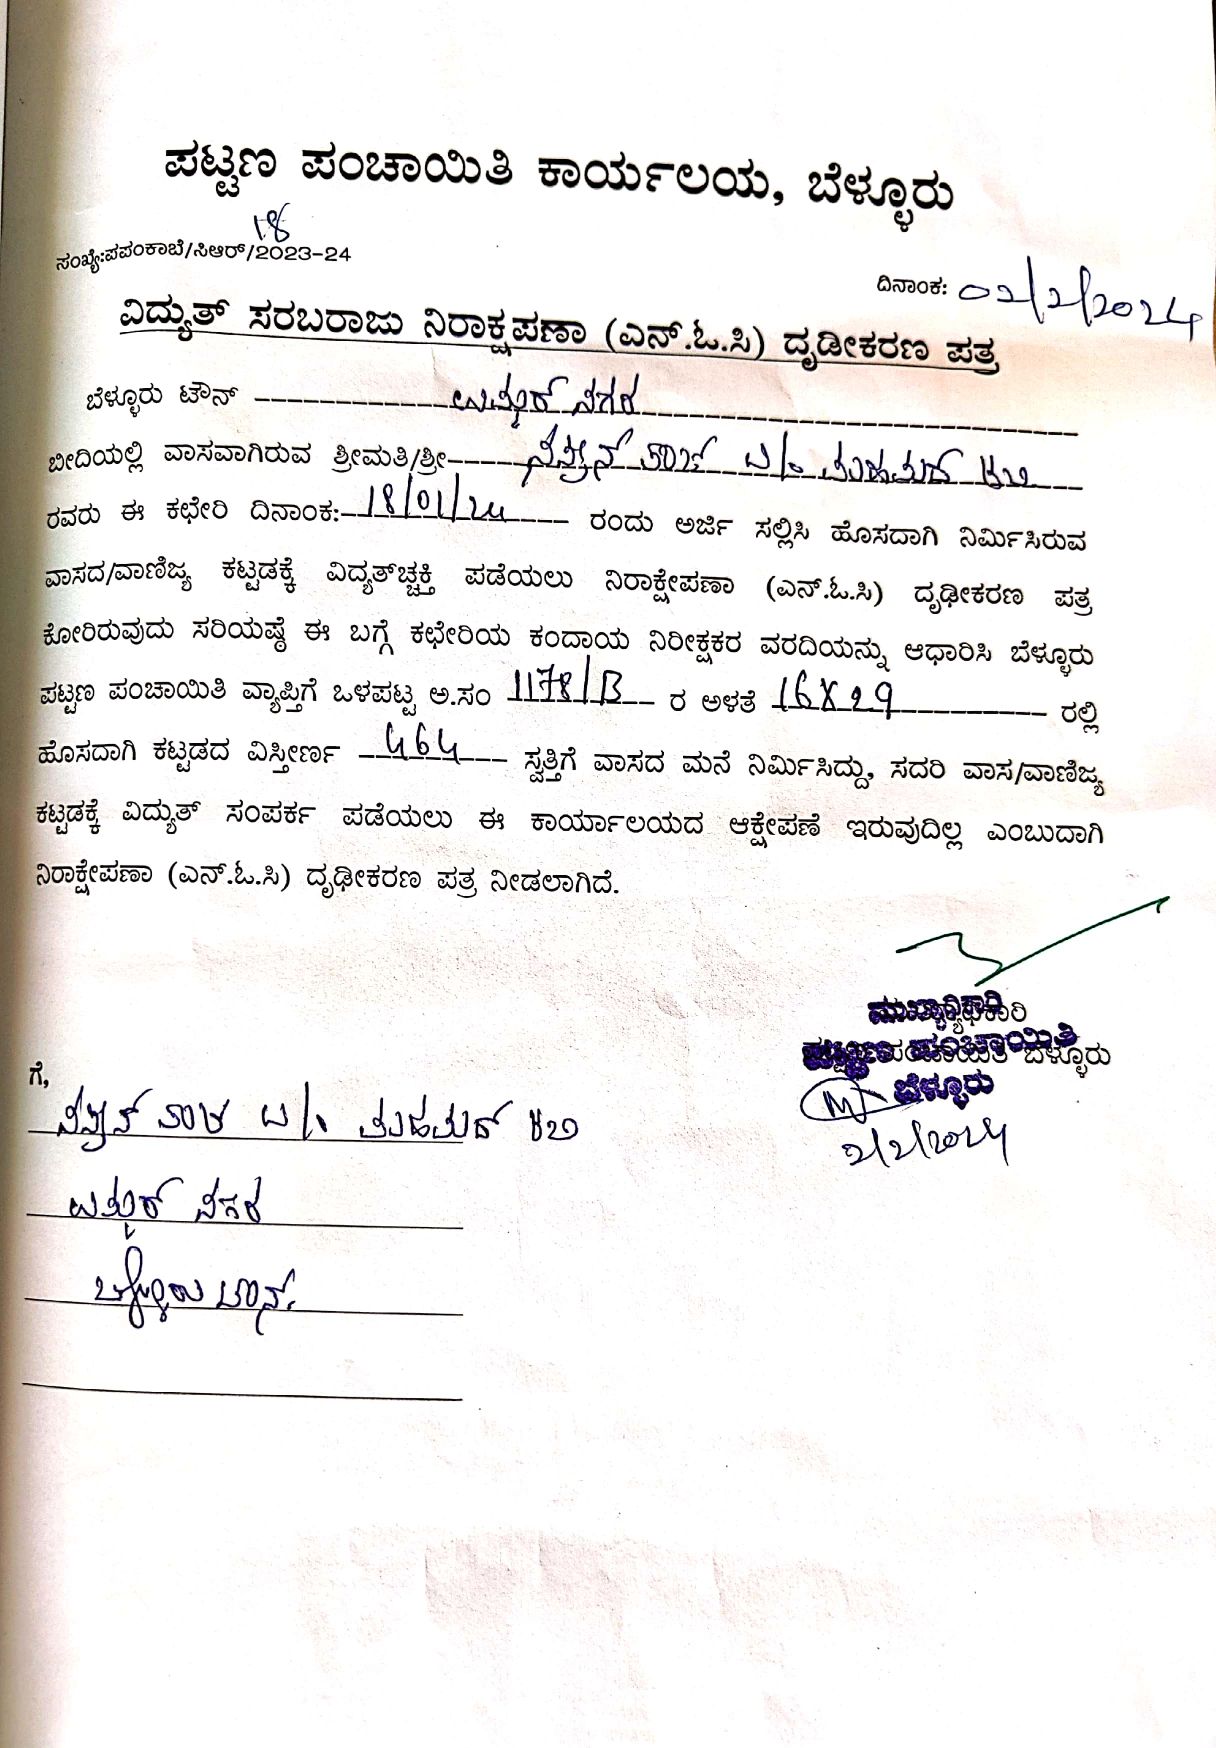 ಪಟ್ಟಣ ಪಂಚಾಯಿತಿ ಕಾರ್ಯಲಯ, ಬೆಳ್ಳೂರು
18
ಸಂಖ್ಯೆ:ಪಪಂಕಾಬೆ/ಸಿಆರ್/2023-24
ದಿನಾಂಕ: 02/2/2024
ವಿದ್ಯುತ್ ಸರಬರಾಜು ನಿರಾಕ್ಷಪಣಾ (ಎನ್.ಓ.ಸಿ) ದೃಡೀಕರಣ ಪತ್ರ
ಬೆಳ್ಳೂರು ಟೌನ್ ನಗರ
ಬೀದಿಯಲ್ಲಿ ವಾಸವಾಗಿರುವ ಶ್ರೀಮತಿ/ಶ್ರೀ
ರವರು ಈ ಕಛೇರಿ ದಿನಾಂಕ: 18/01/24 ರಂದು ಅರ್ಜಿ ಸಲ್ಲಿಸಿ ಹೊಸದಾಗಿ ನಿರ್ಮಿಸಿರುವ
ವಾಸದ/ವಾಣಿಜ್ಯ ಕಟ್ಟಡಕ್ಕೆ ವಿದ್ಯತ್‌ಚ್ಚಕ್ತಿ ಪಡೆಯಲು ನಿರಾಕ್ಷೇಪಣಾ (ಎನ್.ಓ.ಸಿ) ದೃಢೀಕರಣ ಪತ್ರ
ಕೋರಿರುವುದು ಸರಿಯಷ್ಠೆ ಈ ಬಗ್ಗೆ ಕಛೇರಿಯ ಕಂದಾಯ ನಿರೀಕ್ಷಕರ ವರದಿಯನ್ನು ಆಧಾರಿಸಿ ಬೆಳ್ಳೂರು
ಪಟ್ಟಣ ಪಂಚಾಯಿತಿ ವ್ಯಾಪ್ತಿಗೆ ಒಳಪಟ್ಟ ಅ.ಸಂ 1178/B ರ ಅಳತೆ 16X29 ರಲ್ಲಿ
ಹೊಸದಾಗಿ ಕಟ್ಟಡದ ವಿಸ್ತೀರ್ಣ 464 ಸ್ವತ್ತಿಗೆ ವಾಸದ ಮನೆ ನಿರ್ಮಿಸಿದ್ದು, ಸದರಿ ವಾಸ/ವಾಣಿಜ್ಯ
ಕಟ್ಟಡಕ್ಕೆ ವಿದ್ಯುತ್ ಸಂಪರ್ಕ ಪಡೆಯಲು ಈ ಕಾರ್ಯಾಲಯದ ಆಕ್ಷೇಪಣೆ ಇರುವುದಿಲ್ಲ ಎಂಬುದಾಗಿ
ನಿರಾಕ್ಷೇಪಣಾ (ಎನ್.ಓ.ಸಿ) ದೃಢೀಕರಣ ಪತ್ರ ನೀಡಲಾಗಿದೆ.
ಮುಖ್ಯಾಧಿಕಾರಿ
ಪಟ್ಟಣ ಪಂಚಾಯಿತಿ ಬೆಳ್ಳೂರು
ಬೆಳ್ಳೂರು
2/2/2024
ಗೆ,
ನಗರ
ಬೆಳ್ಳೂರು ಟೌನ್.